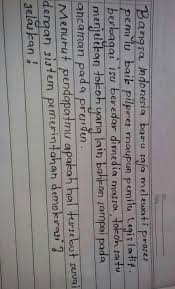 Bangsa Indonesia baru saja melewati proses
pemilu baik pilpres maupun pemilu legislatif.
berbagai isu beredar dimedia massa, tokoh satu
menjelekan tokoh yang lain bahkan sampai pada
ancaman pada presiden.
Menurut pendapatmu apakah hal tersebut sesuai
dengan sistem pemerintahan demokrasi?
jelaskan!